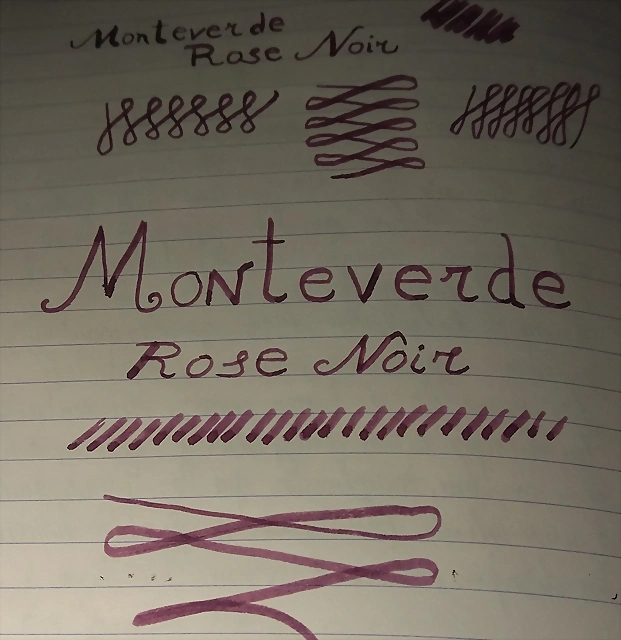 Monteverde
Rose Noir
Monteverde
Rose Noir